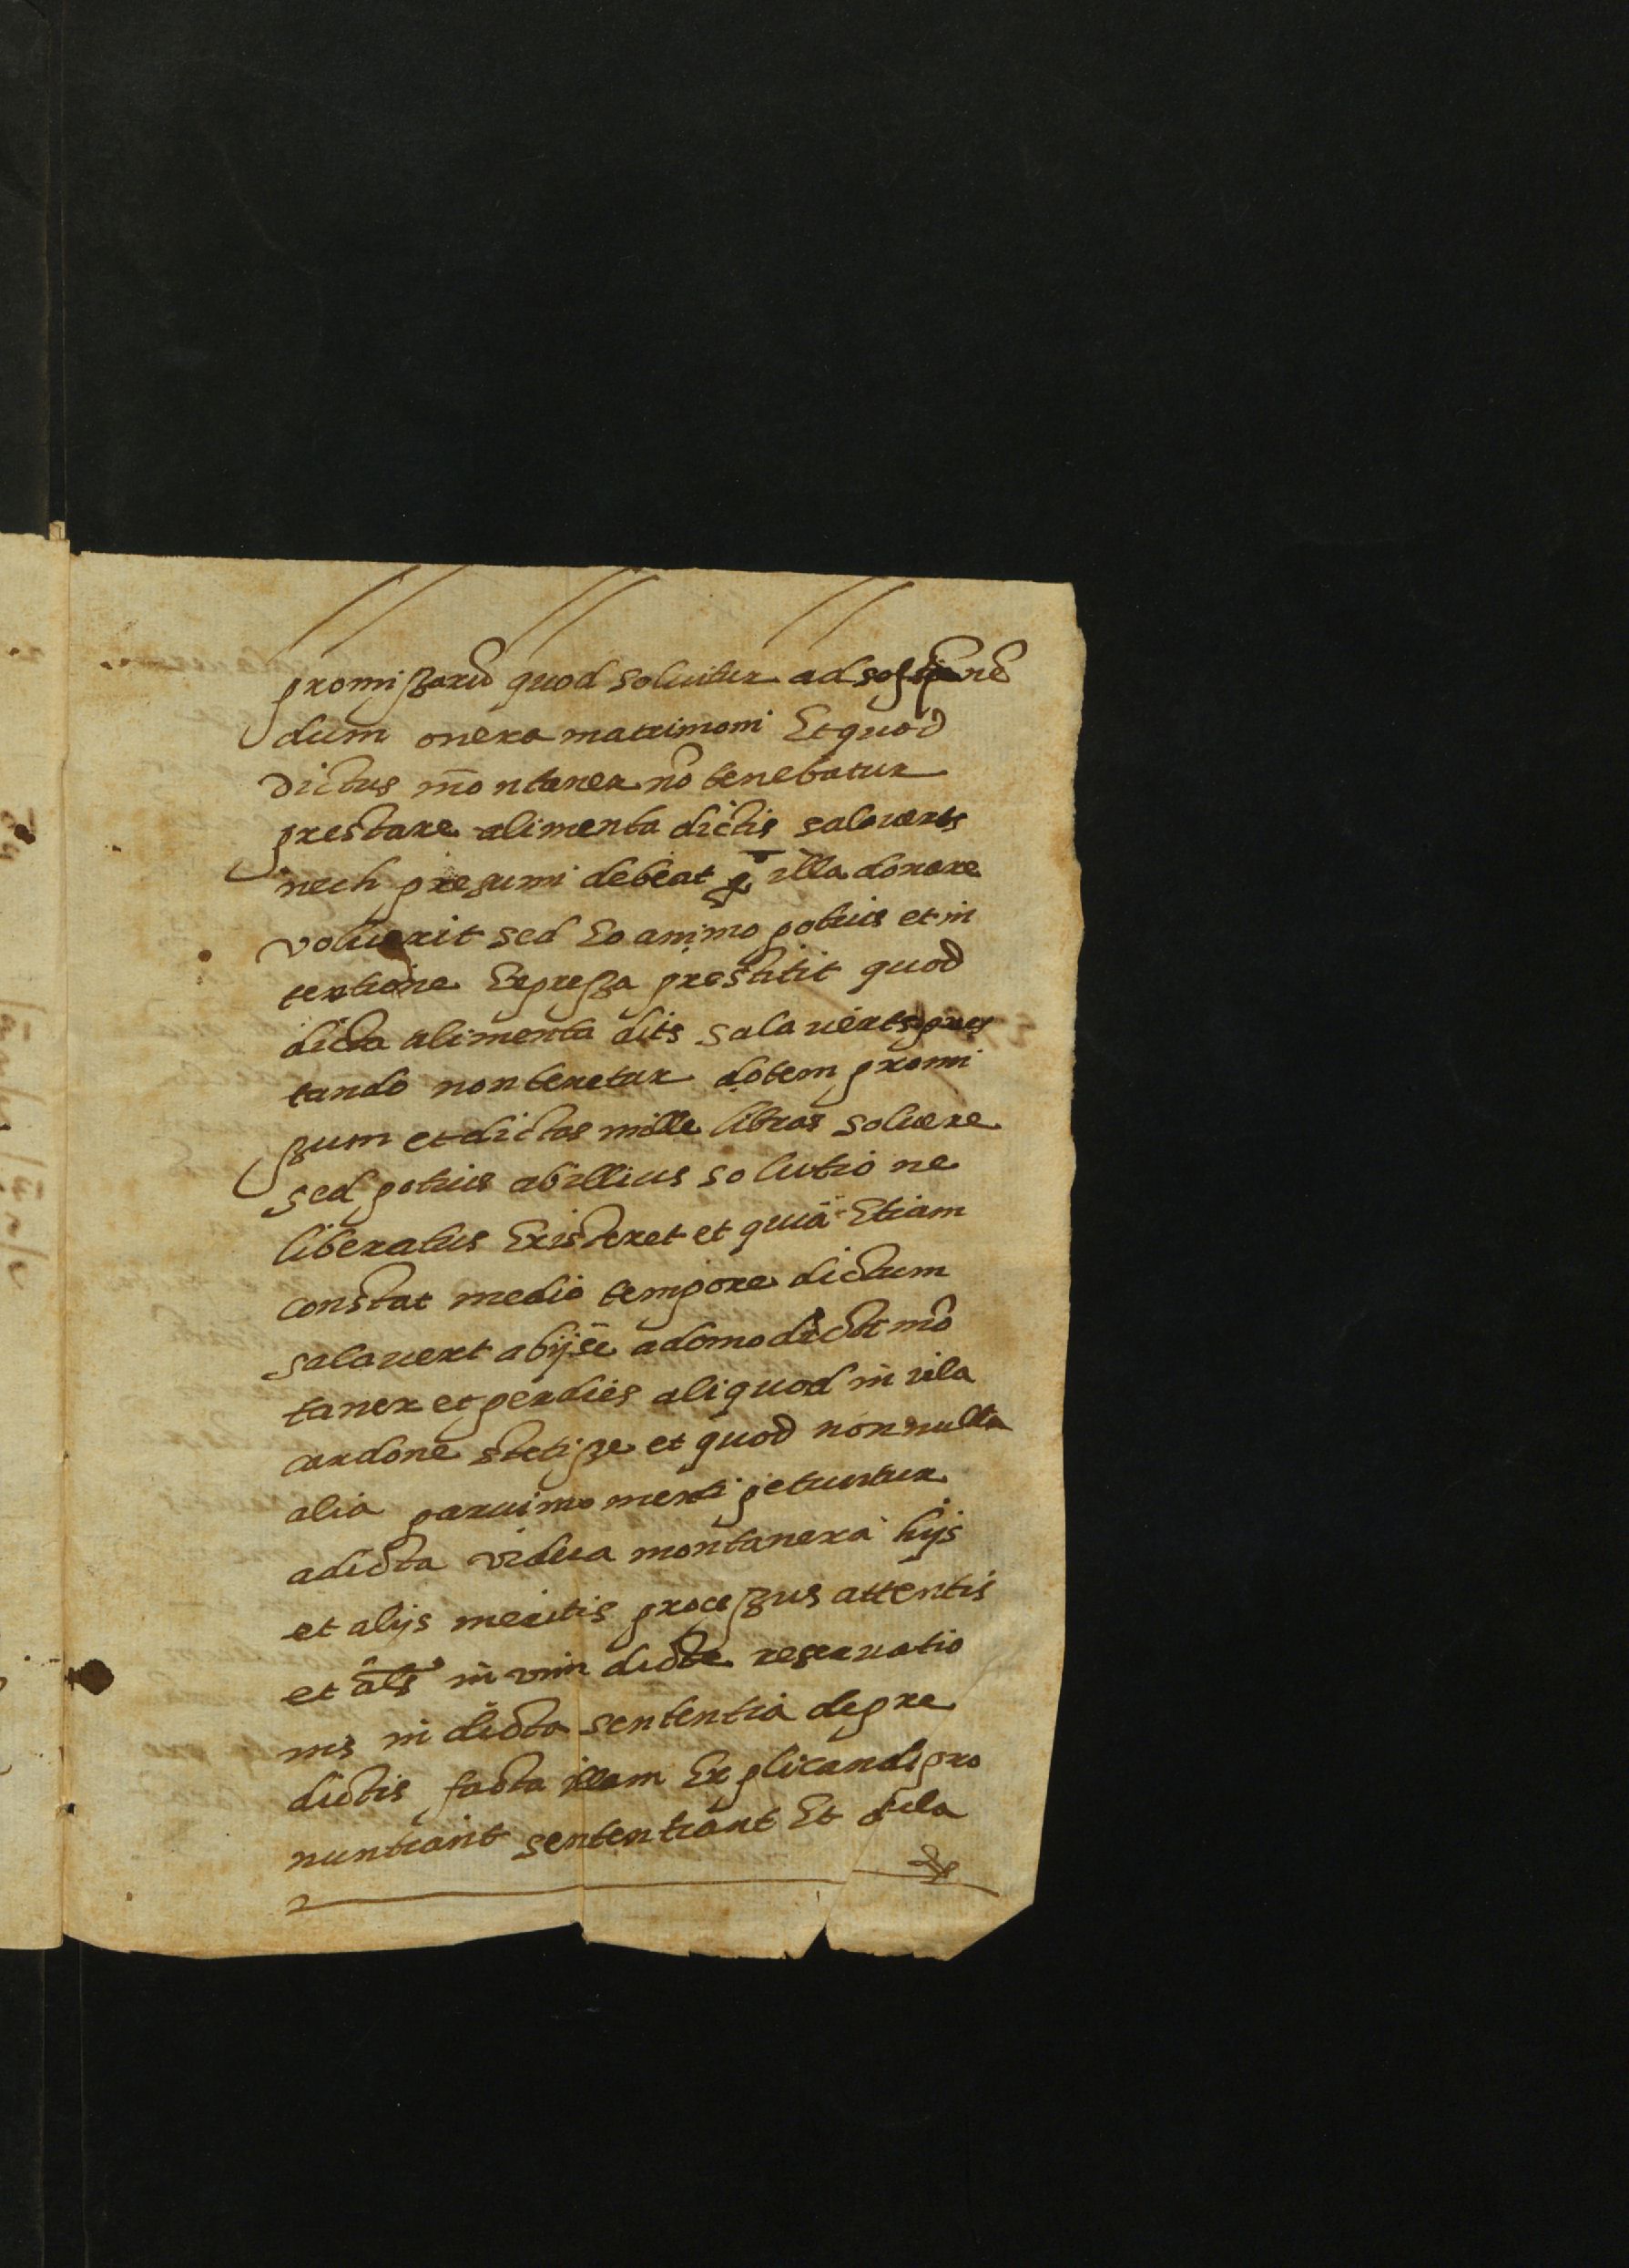 promissaru quod soluitur ad sostinē
dum onera matrimoni Et quod
dictus mōntaner nō tenebatur
prestare alimenta dictis salauerts
nech presumi debeat q̄ illa donare
voluerit sed Eo animo potius et in
tentione Expressa prestitit quod
dicta alimenta dits salauerts pres
tando non teneretur dotem promi
ssum et dictas mille libras soluere
sed potius ab illius solutio ne
liberatus Existeret et quia Etiam
constat medio tempore dictum
salauert abijse a domo dicti mō
taner et per dies aliquod in vila
cardone stetisse et quod non nulla
alia parui momenti petuntur
a dicta vidua montanera hijs
et alijs meritis processus attentis
et als in vim dicte reseruatio
nis in dicta sententia de pre
dictis facta illam Explicandi pro
nuntiant sententiant Et